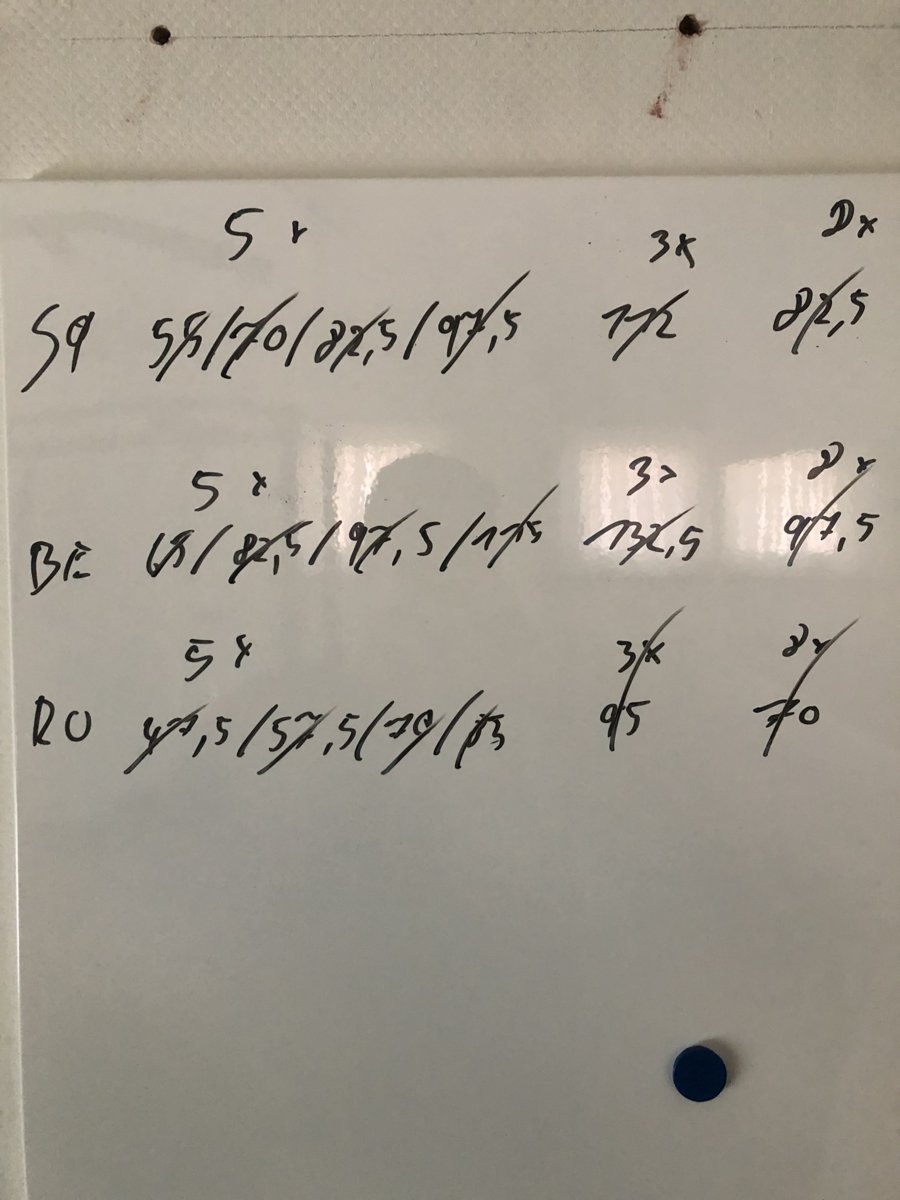 5x 3x 8x
SQ 55/70/82,5/97,5 112 82,5
5x 3x 8x
BE 65/82,5/97,5/115 132,5 97,5
5x 3x 8x
RO 47,5/57,5/70/83 95 70